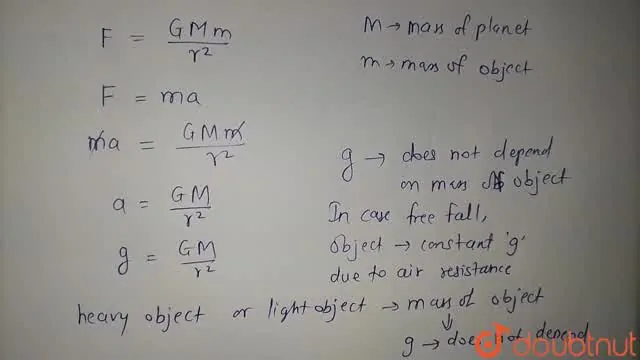 F = GMm/r²
M → mass of planet
m → mass of object
F = ma
ma = GMm/r²
a = GM/r²
g = GM/r²
g → does not depend
on mass of object
In case free fall,
object → constant 'g'
due to air resistance
heavy object or light object → mass of object
↓
g → does not depend
doubtnut